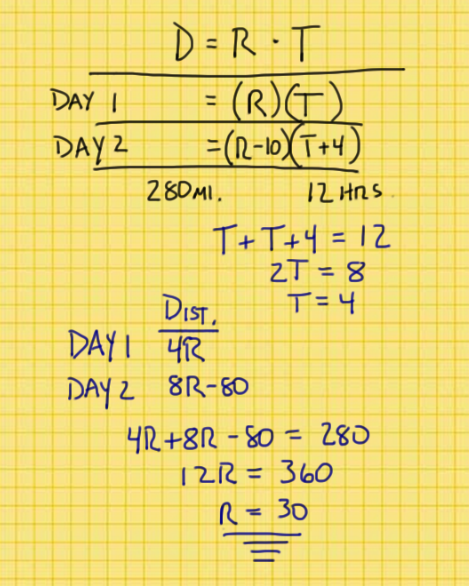 D = R · T
DAY 1 = (R)(T)
DAY 2 = (R-10)(T+4)
280 MI. 12 HRS.
T + T + 4 = 12
2T = 8
T = 4
DIST.
DAY 1 4R
DAY 2 8R-80
4R+8R-80 = 280
12R = 360
R = 30